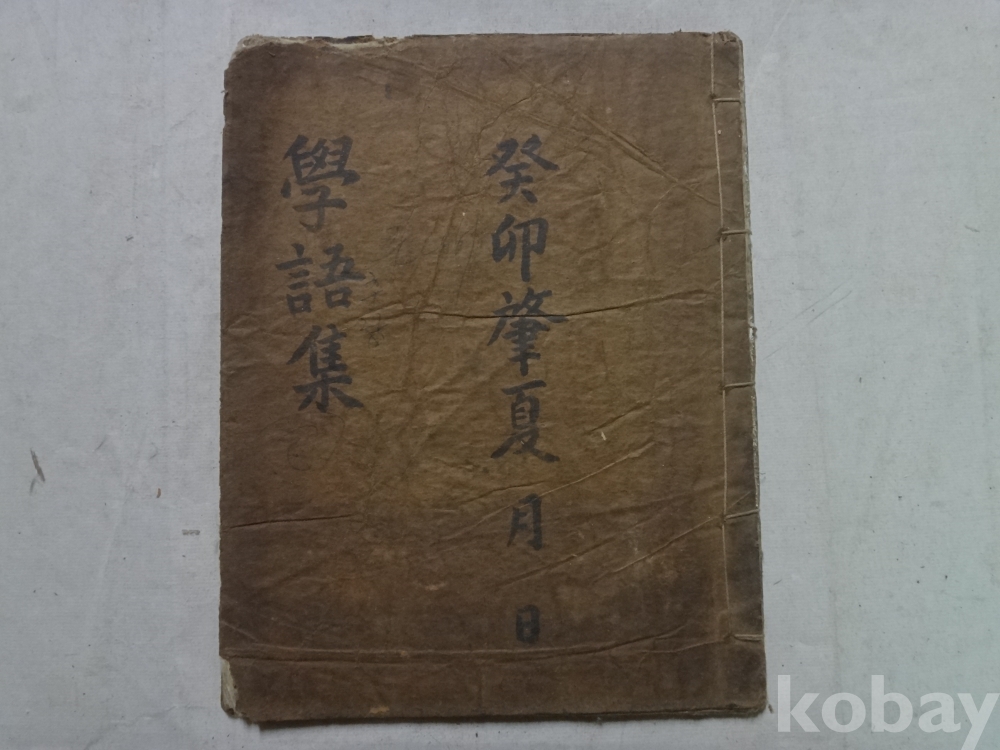 癸卯肇夏 月 日
學語集
kobay